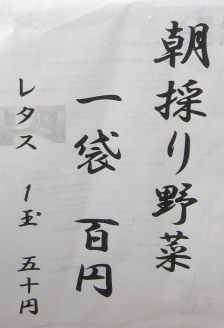 朝採り野菜
一袋 百円
レタス 1玉 五十円